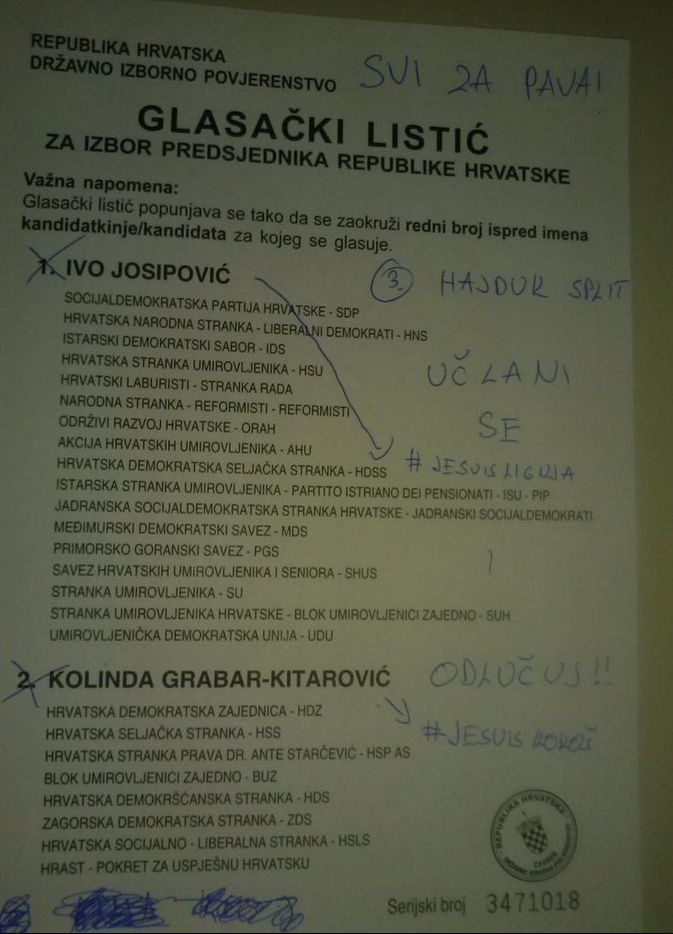 REPUBLIKA HRVATSKA
DRŽAVNO IZBORNO POVJERENSTVO
SVI ZA PAVA!
GLASAČKI LISTIĆ
ZA IZBOR PREDSJEDNIKA REPUBLIKE HRVATSKE
Važna napomena:
Glasački listić popunjava se tako da se zaokruži redni broj ispred imena
kandidatkinje/kandidata za kojeg se glasuje.
1. IVO JOSIPOVIĆ
3. HAJDUK SPLIT
SOCIJALDEMOKRATSKA PARTIJA HRVATSKE - SDP
HRVATSKA NARODNA STRANKA - LIBERALNI DEMOKRATI - HNS
ISTARSKI DEMOKRATSKI SABOR - IDS
HRVATSKA STRANKA UMIROVLJENIKA - HSU
UČLANI
HRVATSKI LABURISTI - STRANKA RADA
NARODNA STRANKA - REFORMISTI - REFORMISTI
SE
ODRŽIVI RAZVOJ HRVATSKE - ORAH
AKCIJA HRVATSKIH UMIROVLJENIKA - AHU
HRVATSKA DEMOKRATSKA SELJAČKA STRANKA - HDSS
# JESUIS LIGNJA
ISTARSKA STRANKA UMIROVLJENIKA - PARTITO ISTRIANO DEI PENSIONATI - ISU - PIP
JADRANSKA SOCIJALDEMOKRATSKA STRANKA HRVATSKE - JADRANSKI SOCIJALDEMOKRATI
MEĐIMURSKI DEMOKRATSKI SAVEZ - MDS
PRIMORSKO GORANSKI SAVEZ - PGS
I
SAVEZ HRVATSKIH UMIROVLJENIKA I SENIORA - SHUS
STRANKA UMIROVLJENIKA - SU
STRANKA UMIROVLJENIKA HRVATSKE - BLOK UMIROVLJENICI ZAJEDNO - SUH
UMIROVLJENIČKA DEMOKRATSKA UNIJA - UDU
2. KOLINDA GRABAR-KITAROVIĆ
ODLUČUJ!!
HRVATSKA DEMOKRATSKA ZAJEDNICA - HDZ
HRVATSKA SELJAČKA STRANKA - HSS
# JESUIS KOKOŠ
HRVATSKA STRANKA PRAVA DR. ANTE STARČEVIĆ - HSP AS
BLOK UMIROVLJENICI ZAJEDNO - BUZ
HRVATSKA DEMOKRŠĆANSKA STRANKA - HDS
ZAGORSKA DEMOKRATSKA STRANKA - ZDS
HRVATSKA SOCIJALNO - LIBERALNA STRANKA - HSLS
HRAST - POKRET ZA USPJEŠNU HRVATSKU
REPUBLIKA HRVATSKA
ZAGREB
Serijski broj 3471018